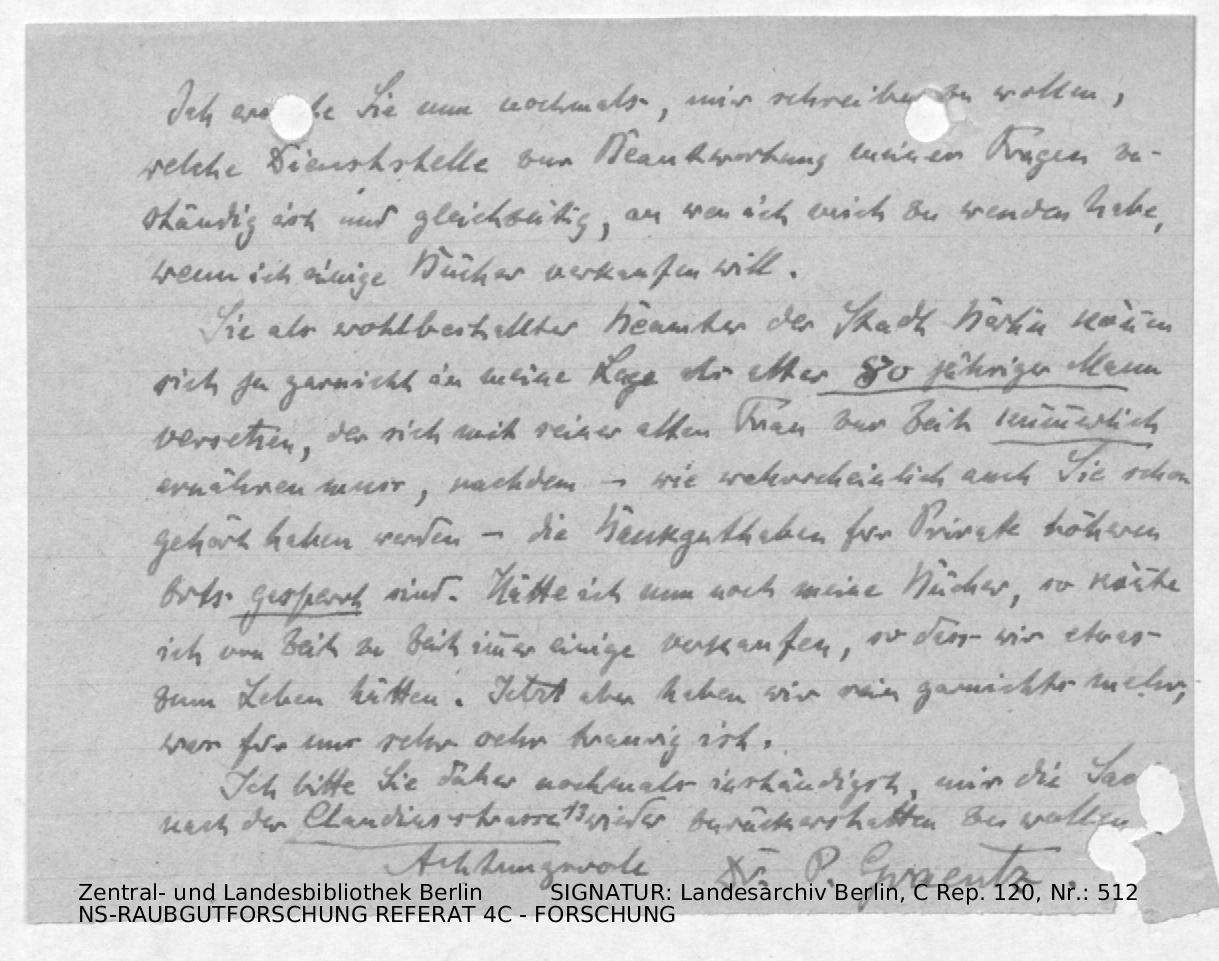 Ich ersuche Sie nun nochmals, mir schreiben zu wollen,
welche Dienststelle zur Beantwortung meiner Fragen zu-
ständig ist und gleichzeitig, an wen ich mich zu wenden habe,
wenn ich einige Bücher verkaufen will.
Sie als wohlbestallter Beamter der Stadt Berlin können
sich ja garnicht in meine Lage als alter 80 jähriger Mann
versetzen, der sich mit seiner alten Frau zur Zeit kümmerlich
ernähren muss, nachdem – wie wahrscheinlich auch Sie schon
gehört haben werden – die Bankguthaben für Private höheren
Orts gesperrt sind. Hätte ich nun noch meine Bücher, so könnte
ich von Zeit zu Zeit immer einige verkaufen, so dass wir etwas
zum Leben hätten. Jetzt aber haben wir rein garnichts mehr,
was für uns sehr sehr traurig ist.
Ich bitte Sie daher nochmals inständigst, mir die
nach der Claudiusstrasse 13 wieder zurückerstatten zu wollen
Achtungsvoll Dr. P. Graentz.
Zentral- und Landesbibliothek Berlin SIGNATUR: Landesarchiv Berlin, C Rep. 120, Nr.: 512
NS-RAUBGUTFORSCHUNG REFERAT 4C - FORSCHUNG